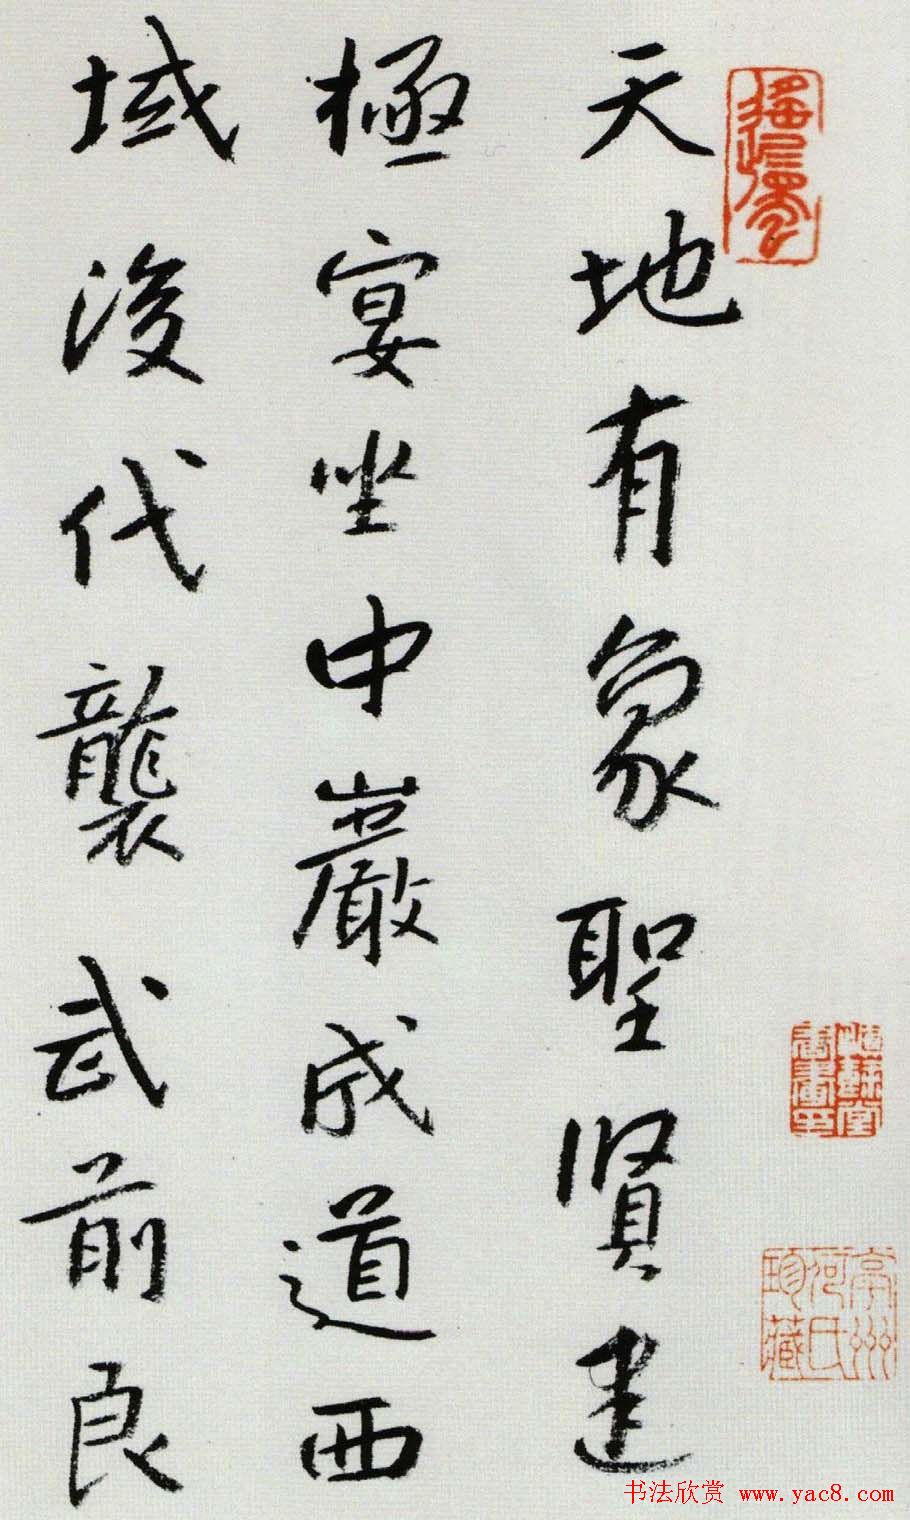 天地有象聖賢建
極宴坐中巖成道西
域後代襲武前良
亭州
何氏
珍藏
书法欣赏 www.yac8.com